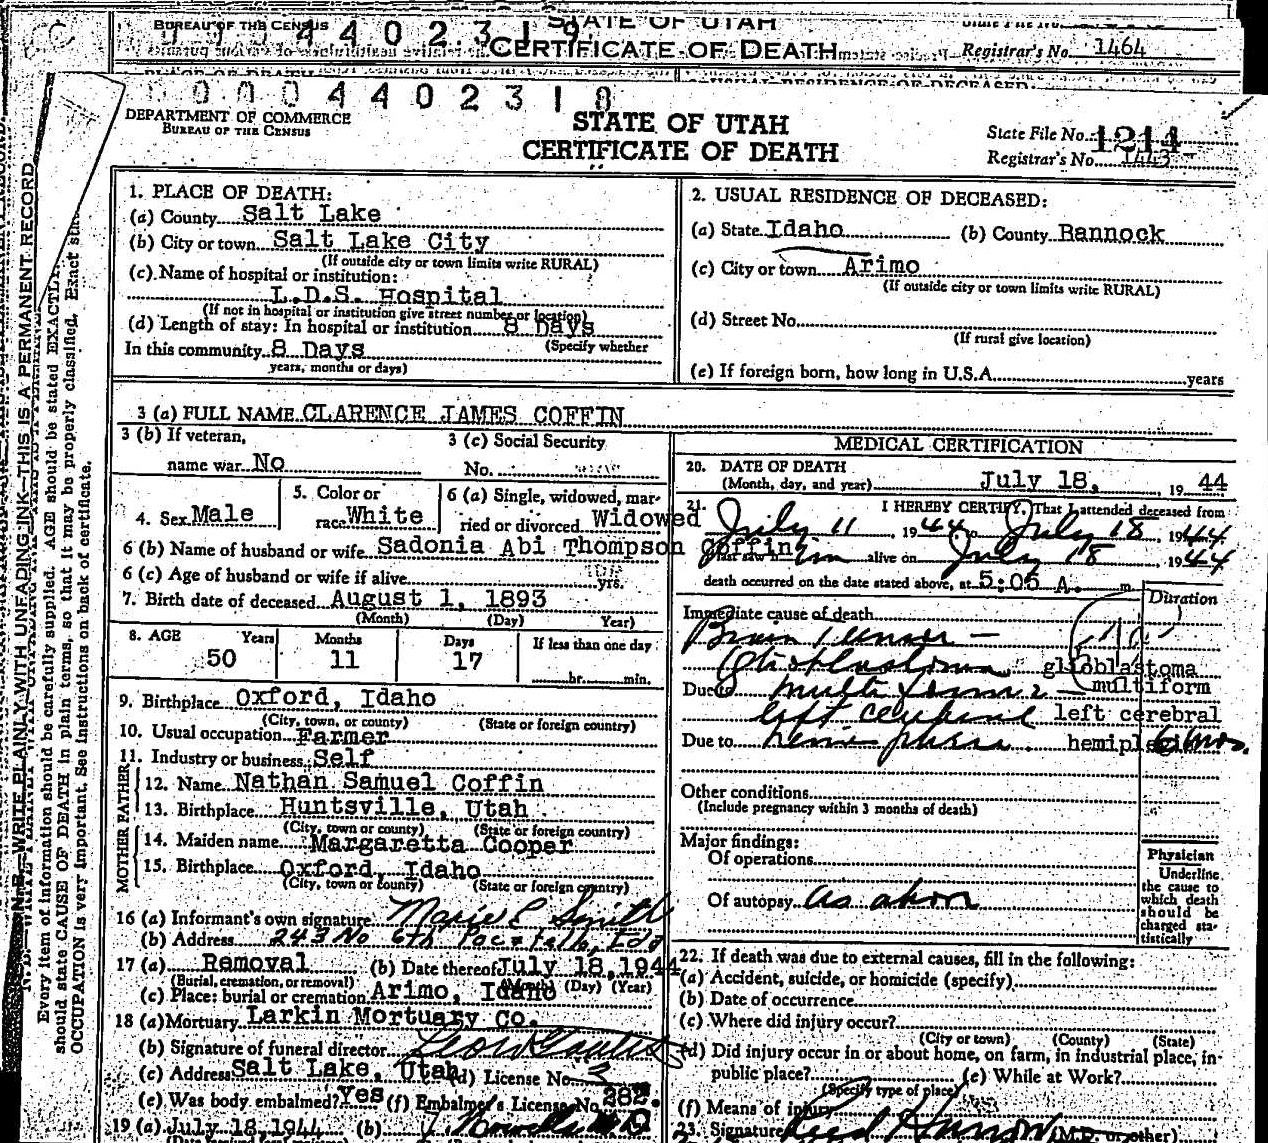 BUREAU OF THE CENSUS
STATE OF UTAH
CERTIFICATE OF DEATH
Registrar's No. 1464
0004402318
DEPARTMENT OF COMMERCE
BUREAU OF THE CENSUS
STATE OF UTAH
CERTIFICATE OF DEATH
State File No. 1214
Registrar's No. 1443
1. PLACE OF DEATH:
(a) County Salt Lake
(b) City or town Salt Lake City
(If outside city or town limits write RURAL)
(c) Name of hospital or institution:
L.D.S. Hospital
(If not in hospital or institution give street number or location)
(d) Length of stay: In hospital or institution 8 Days
(Specify whether
In this community 8 Days
years, months or days)
2. USUAL RESIDENCE OF DECEASED:
(a) State Idaho (b) County Bannock
(c) City or town Arimo
(If outside city or town limits write RURAL)
(d) Street No.
(If rural give location)
(e) If foreign born, how long in U.S.A. years
3 (a) FULL NAME CLARENCE JAMES COFFIN
3 (b) If veteran,
name war No
3 (c) Social Security
No.
4. Sex Male
5. Color or
race White
6 (a) Single, widowed, mar-
ried or divorced Widowed
6 (b) Name of husband or wife Sadonia Abi Thompson Coffin
6 (c) Age of husband or wife if alive yrs.
7. Birth date of deceased August 1, 1893
(Month) (Day) Year)
8. AGE Years Months Days If less than one day
50 11 17 hr. min.
9. Birthplace Oxford, Idaho
(City, town, or county) (State or foreign country)
10. Usual occupation Farmer
11. Industry or business Self
FATHER
12. Name Nathan Samuel Coffin
13. Birthplace Huntsville, Utah
(City, town or county) (State or foreign country)
MOTHER
14. Maiden name Margaretta Cooper
15. Birthplace Oxford, Idaho
(City, town or county) (State or foreign country)
16 (a) Informant's own signature Marie E Smith
(b) Address 243 No 6th Pocatello, Ida
17 (a) Removal (b) Date thereof July 18, 1944
(Burial, cremation, or removal) (Month) (Day) (Year)
(c) Place: burial or cremation Arimo, Idaho
18 (a) Mortuary Larkin Mortuary Co.
(b) Signature of funeral director
(c) Address Salt Lake, Utah (d) License No.
(e) Was body embalmed? Yes (f) Embalmer's License No. 282.
19 (a) July 18, 1944 (b)
MEDICAL CERTIFICATION
20. DATE OF DEATH
(Month, day, and year) July 18, 19 44
21. I HEREBY CERTIFY, That I attended deceased from
July 11 1944 July 18 1944
last saw him alive on July 18 1944
death occurred on the date stated above, at 5:05 A. m.
Duration
Immediate cause of death
Brain Tumor -
Glioblastoma glioblastoma
Due to multiforme - multiform
left cerebral left cerebral
Due to hemisphere. 6 mos.
Other conditions
(Include pregnancy within 3 months of death)
Major findings:
Of operations
Of autopsy as above
Physician
Underline
the cause to
which death
should be
charged sta-
tistically
22. If death was due to external causes, fill in the following:
(a) Accident, suicide, or homicide (specify)
(b) Date of occurrence
(c) Where did injury occur?
(City or town) (County) (State)
(d) Did injury occur in or about home, on farm, in industrial place, in-
public place? (e) While at Work?
(Specify type of place)
(f) Means of injury
23. Signature (M.D. or other)
WRITE PLAINLY WITH UNFADING INK—THIS IS A PERMANENT RECORD
Every item of information should be carefully supplied. AGE should be stated EXACTLY.
should state CAUSE OF DEATH in plain terms, so that it may be properly classified. Exact
OCCUPATION is very important. See instructions on back of certificate.